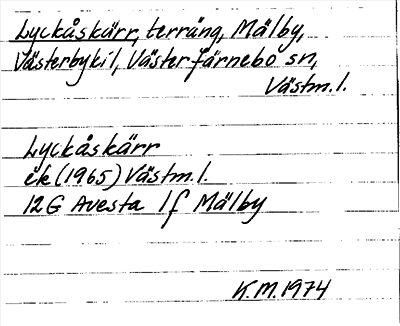 Lyckåskärr, terräng, Mälby,
Västerbykil, Västerfärnebo sn,
Västm.l.
Lyckåskärr
ek (1965) Västm.l.
12G Avesta 1f Mälby
K.M. 1974